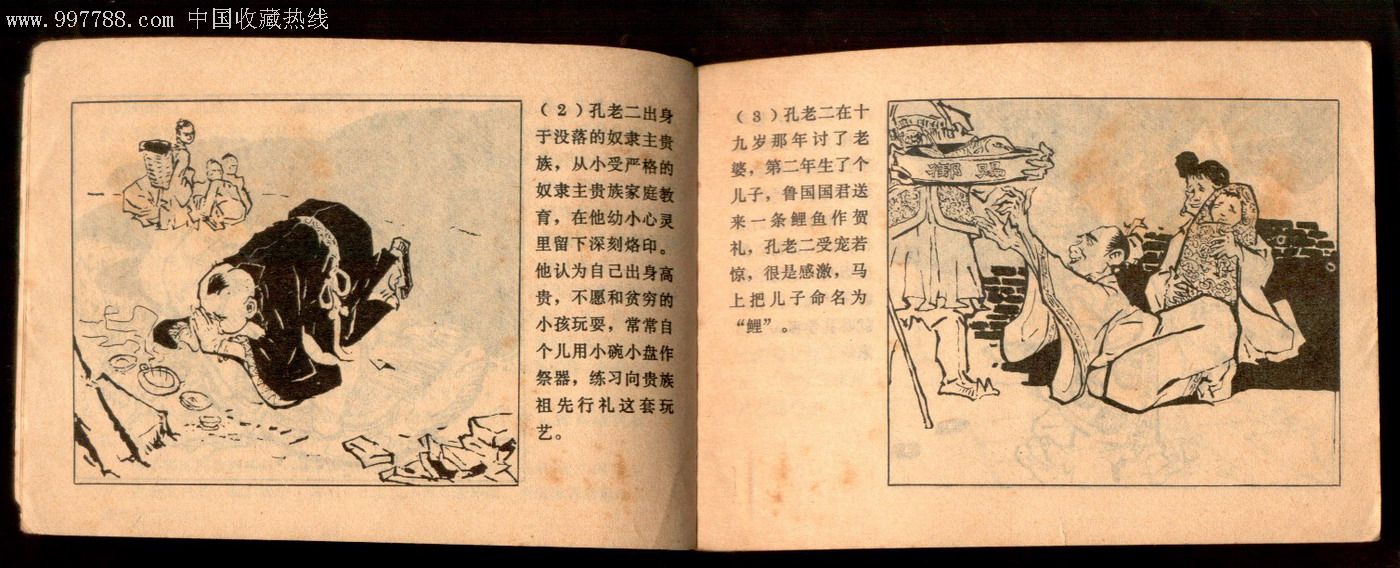 www.997788.com 中国收藏热线
（2）孔老二出身
于没落的奴隶主贵
族，从小受严格的
奴隶主贵族家庭教
育，在他幼小心灵
里留下深刻烙印。
他认为自己出身高
贵，不愿和贫穷的
小孩玩耍，常常自
个儿用小碗小盘作
祭器，练习向贵族
祖先行礼这套玩
艺。
（3）孔老二在十
九岁那年讨了老
婆，第二年生了个
儿子，鲁国国君送
来一条鲤鱼作贺
礼，孔老二受宠若
惊，很是感激，马
上把儿子命名为
“鲤”。
御赐